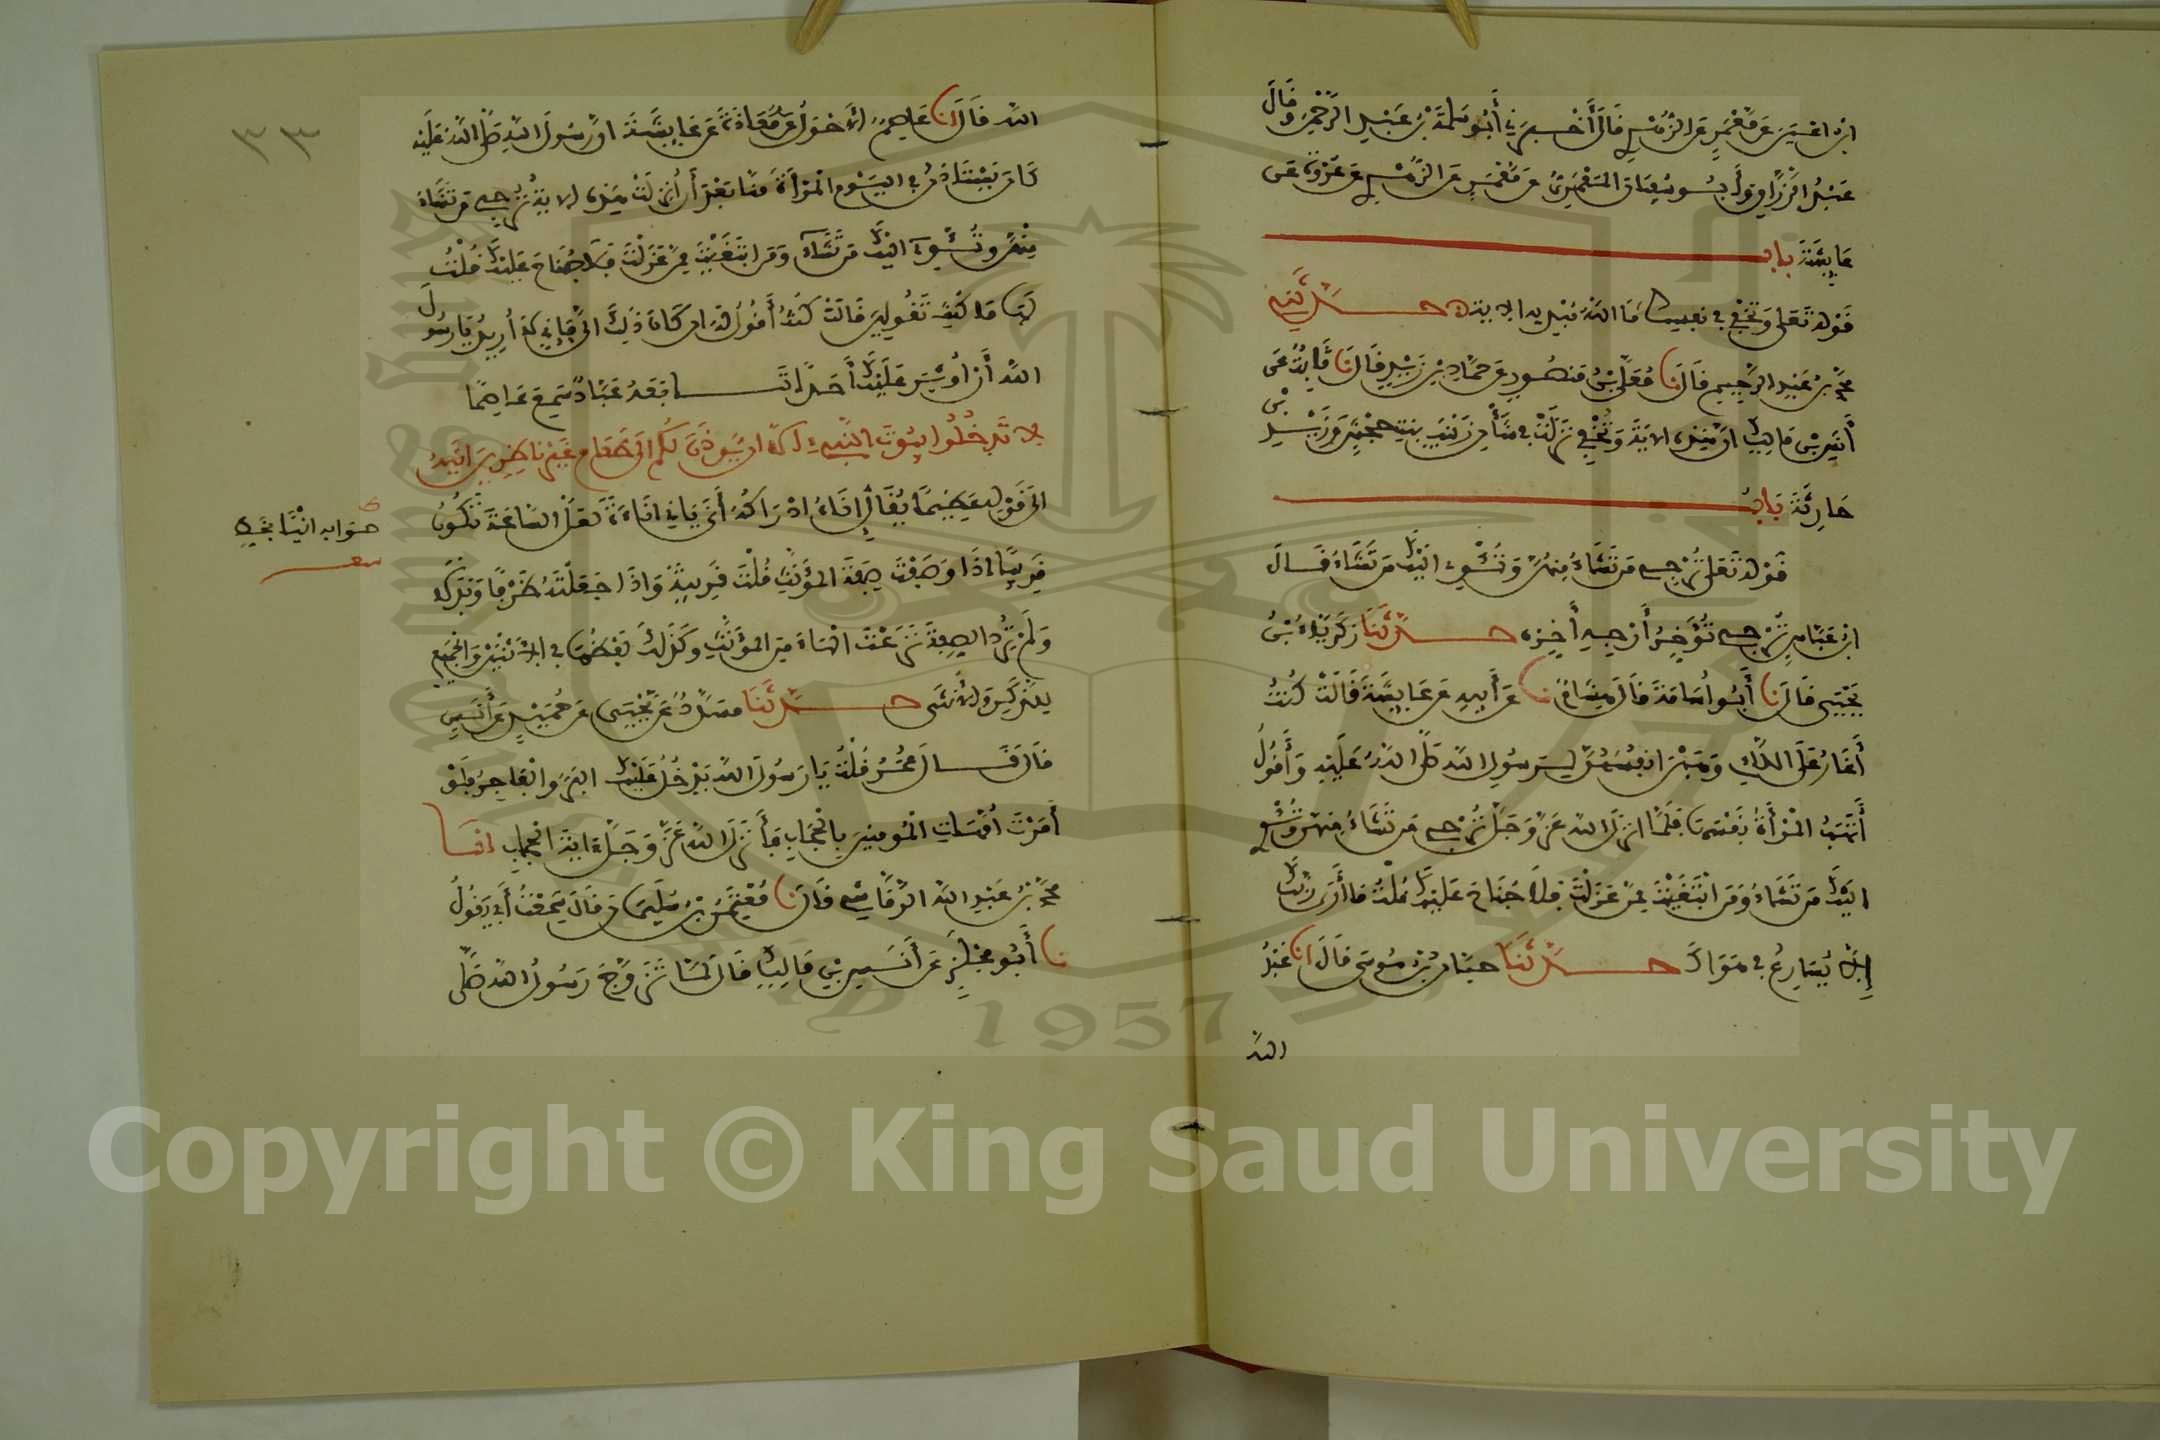 ابن اعين عن معمر عن الزهري قال أخبرني أبو سلمة بن عبد الرحمن وقال
عبد الرزاق وأبو سفيان المعمري عن معمر عن الزهري عن عروة عن
عايشة باب
قوله تعلى وتخفي في نفسك ما الله مبديه الاية حدثني
محمد بن عبد الرحيم قال نا معلى بن منصور عن حماد بن زيد قال نا ثابت عن
أنس بن مالك ان هذه الاية وتخفي نزلت في شأن زينب بنت جحش وزيد بن
حارثة باب
قوله تعلى ترجي من تشاء منهن وتئوي اليك من تشاء قال
ابن عباس ترجي تؤخر أرجه أخره حدثنا زكرياء بن
يحيى قال نا أبو أسامة قال هشام نا عن أبيه عن عايشة قالت كنت
أغار على اللاي وهبن انفسهن لرسول الله صلى الله عليه وأقول
أتهب المرأة نفسها فلما انزل الله عز وجل ترجي من تشاء منهن وتئوي
اليك من تشاء ومن ابتغيت ممن عزلت فلا جناح عليك قلت ما أرى ربك
إلا يسارع في هواك حدثنا حبان بن موسى قال انا عبد
الله
٣٣
الله قال انا عاصم الأحول عن معاذة عن عايشة ان رسول الله صلى الله عليه
كان يستاذن في اليوم المرأة منا بعد أن أنزلت هذه الاية ترجي من تشاء
منهن وتئوي اليك من تشاء ومن ابتغيت ممن عزلت فلا جناح عليك فقلت
لها ما كنت تقولين قالت كنت أقول له ان كان ذلك الي فإني لا أريد يا رسول
الله أن اوثر عليك أحدا تابعه عباد سمع عاصما
لا تدخلوا بيوت النبيء الا ان يوذن لكم الى طعام غير ناظرين انيه
الى قوله عظيما يقال إناه ادراكه أنى يأني اناءة لعل الساعة تكون
صوابه انيا بخطه
سعد
قريبا اذا وصفت صفة المؤنث قلت قريبة واذا جعلته ظرفا وبدلا
ولم ترد الصفة نزعت الهاء من المؤنث وكذلك لفظها في الاثنين والجميع
للذكر والأنثى حدثنا مسدد عن يحيى عن حميد عن أنس
قال قال عمر قلت يا رسول الله يدخل عليك البر والفاجر فلو
أمرت أمهات المومنين بالحجاب فأنزل الله عز وجل ءاية الحجاب نا
محمد بن عبد الله الرقاشي قال نا معتمر بن سليمان قال سمعت أبي يقول
نا أبو مجلز عن أنس بن مالك قال لما تزوج رسول الله صلى
Copyright © King Saud University
1957